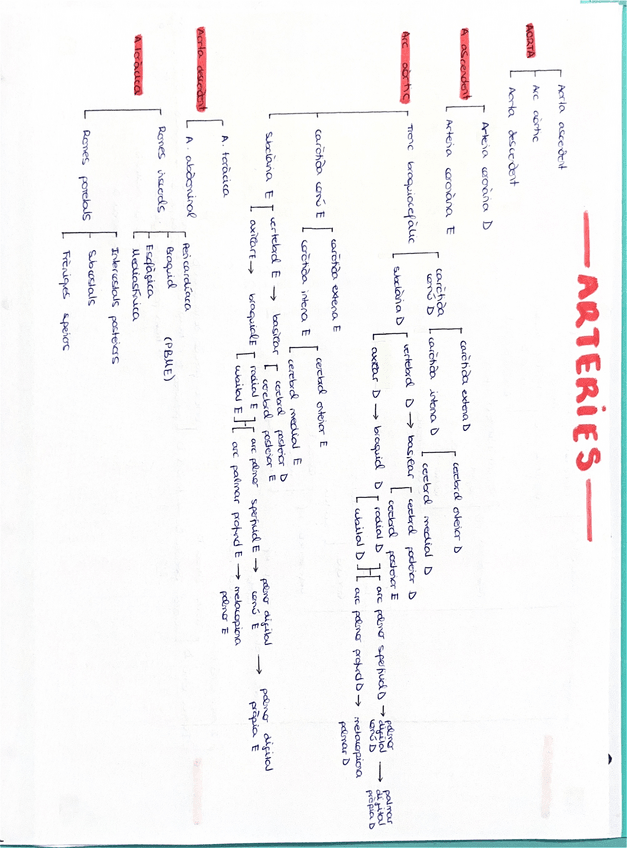 ARTERIES
AORTA
Aorta ascendent
Arc aòrtic
Aorta descendent
A ascendent
Artèria coronària D
Artèria coronària E
Arc aòrtic
Tronc braquiocefàlic
caròtida comú D
caròtida externa D
caròtida interna D
cerebral anterior D
cerebral medial D
subclàvia D
vertebral D → basilar
cerebral posterior D
cerebral posterior E
axilar D → braquial D
radial D
ulnar D
arc palmar superficial D → palmar digital comú D → palmar digital pròpia D
arc palmar profund D → metacarpiana palmar D
caròtida comú E
caròtida externa E
caròtida interna E
cerebral anterior E
cerebral medial E
subclàvia E
vertebral E → basilar
cerebral posterior D
cerebral posterior E
axilar E → braquial E
radial E
arc palmar superficial E → palmar digital comú E → palmar digital pròpia E
arc palmar profund E → metacarpiana palmar E
Aorta descendent
A. toràcica
A. abdominal
A toràcica
Rames viscerals
Pericardíaca
Braquial (PBME)
Esofàgica
Mediastínica
Rames parietals
Intercostals posteriors
Subcostals
Frèniques superiors